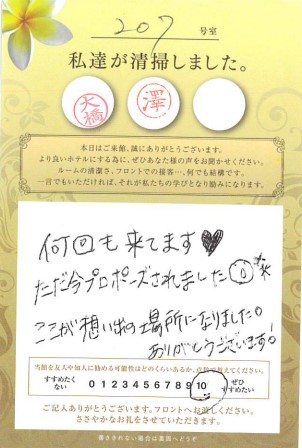 207 号室
私達が清掃しました。
大橋 澤
本日はご来館、誠にありがとうございます。
より良いホテルにする為に、ぜひあなた様の声をお聞かせください。
ルームの清潔さ、フロントでの接客…、何でも結構です。
一言でもいただければ、それが私たちの学びとなり励みになります。
何回も来てます♥
ただ今プロポーズされました
ここが想い出の場所になりました!
ありがとうございます!
当館を友人や知人に勧める可能性はどのくらいあるか、点数で教えてください。
すすめたくない 0 1 2 3 4 5 6 7 8 9 10 ぜひすすめたい
ご記入ありがとうございます。フロントへお渡しください。
ささやかなお礼をさせていただきます。
書きされない場合は裏面へどうぞ